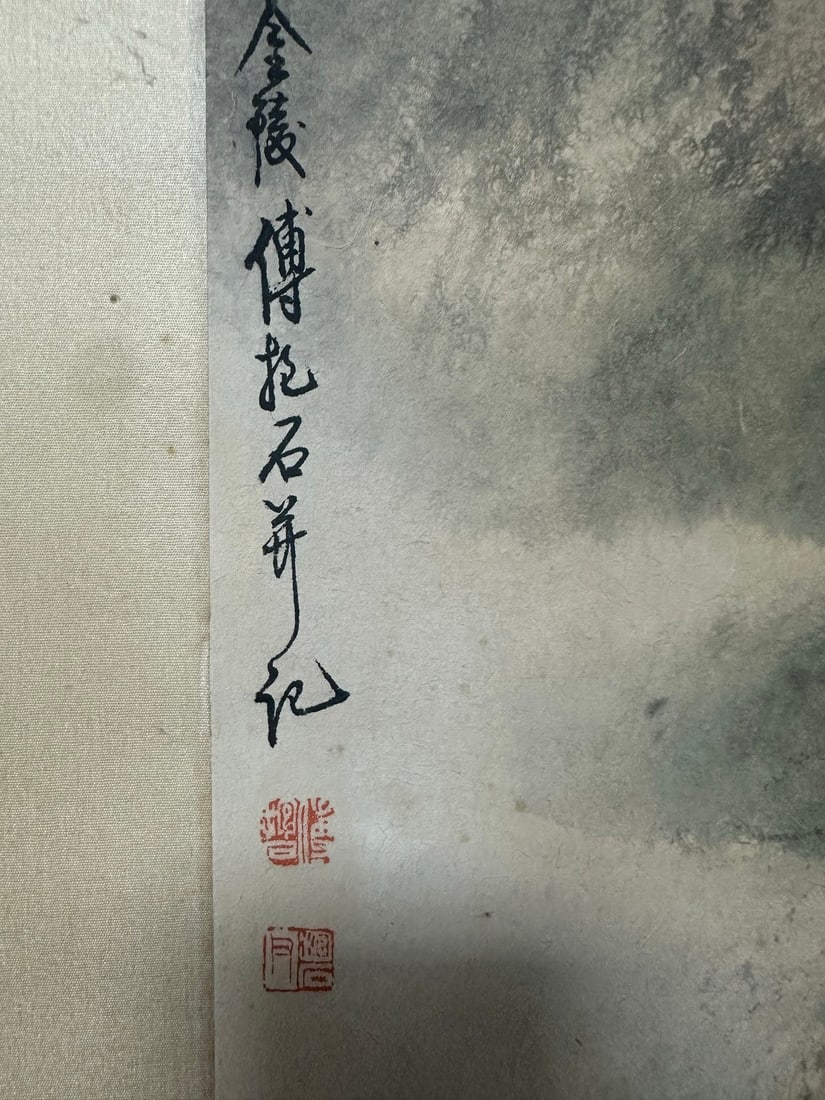 金陵傅抱石并记